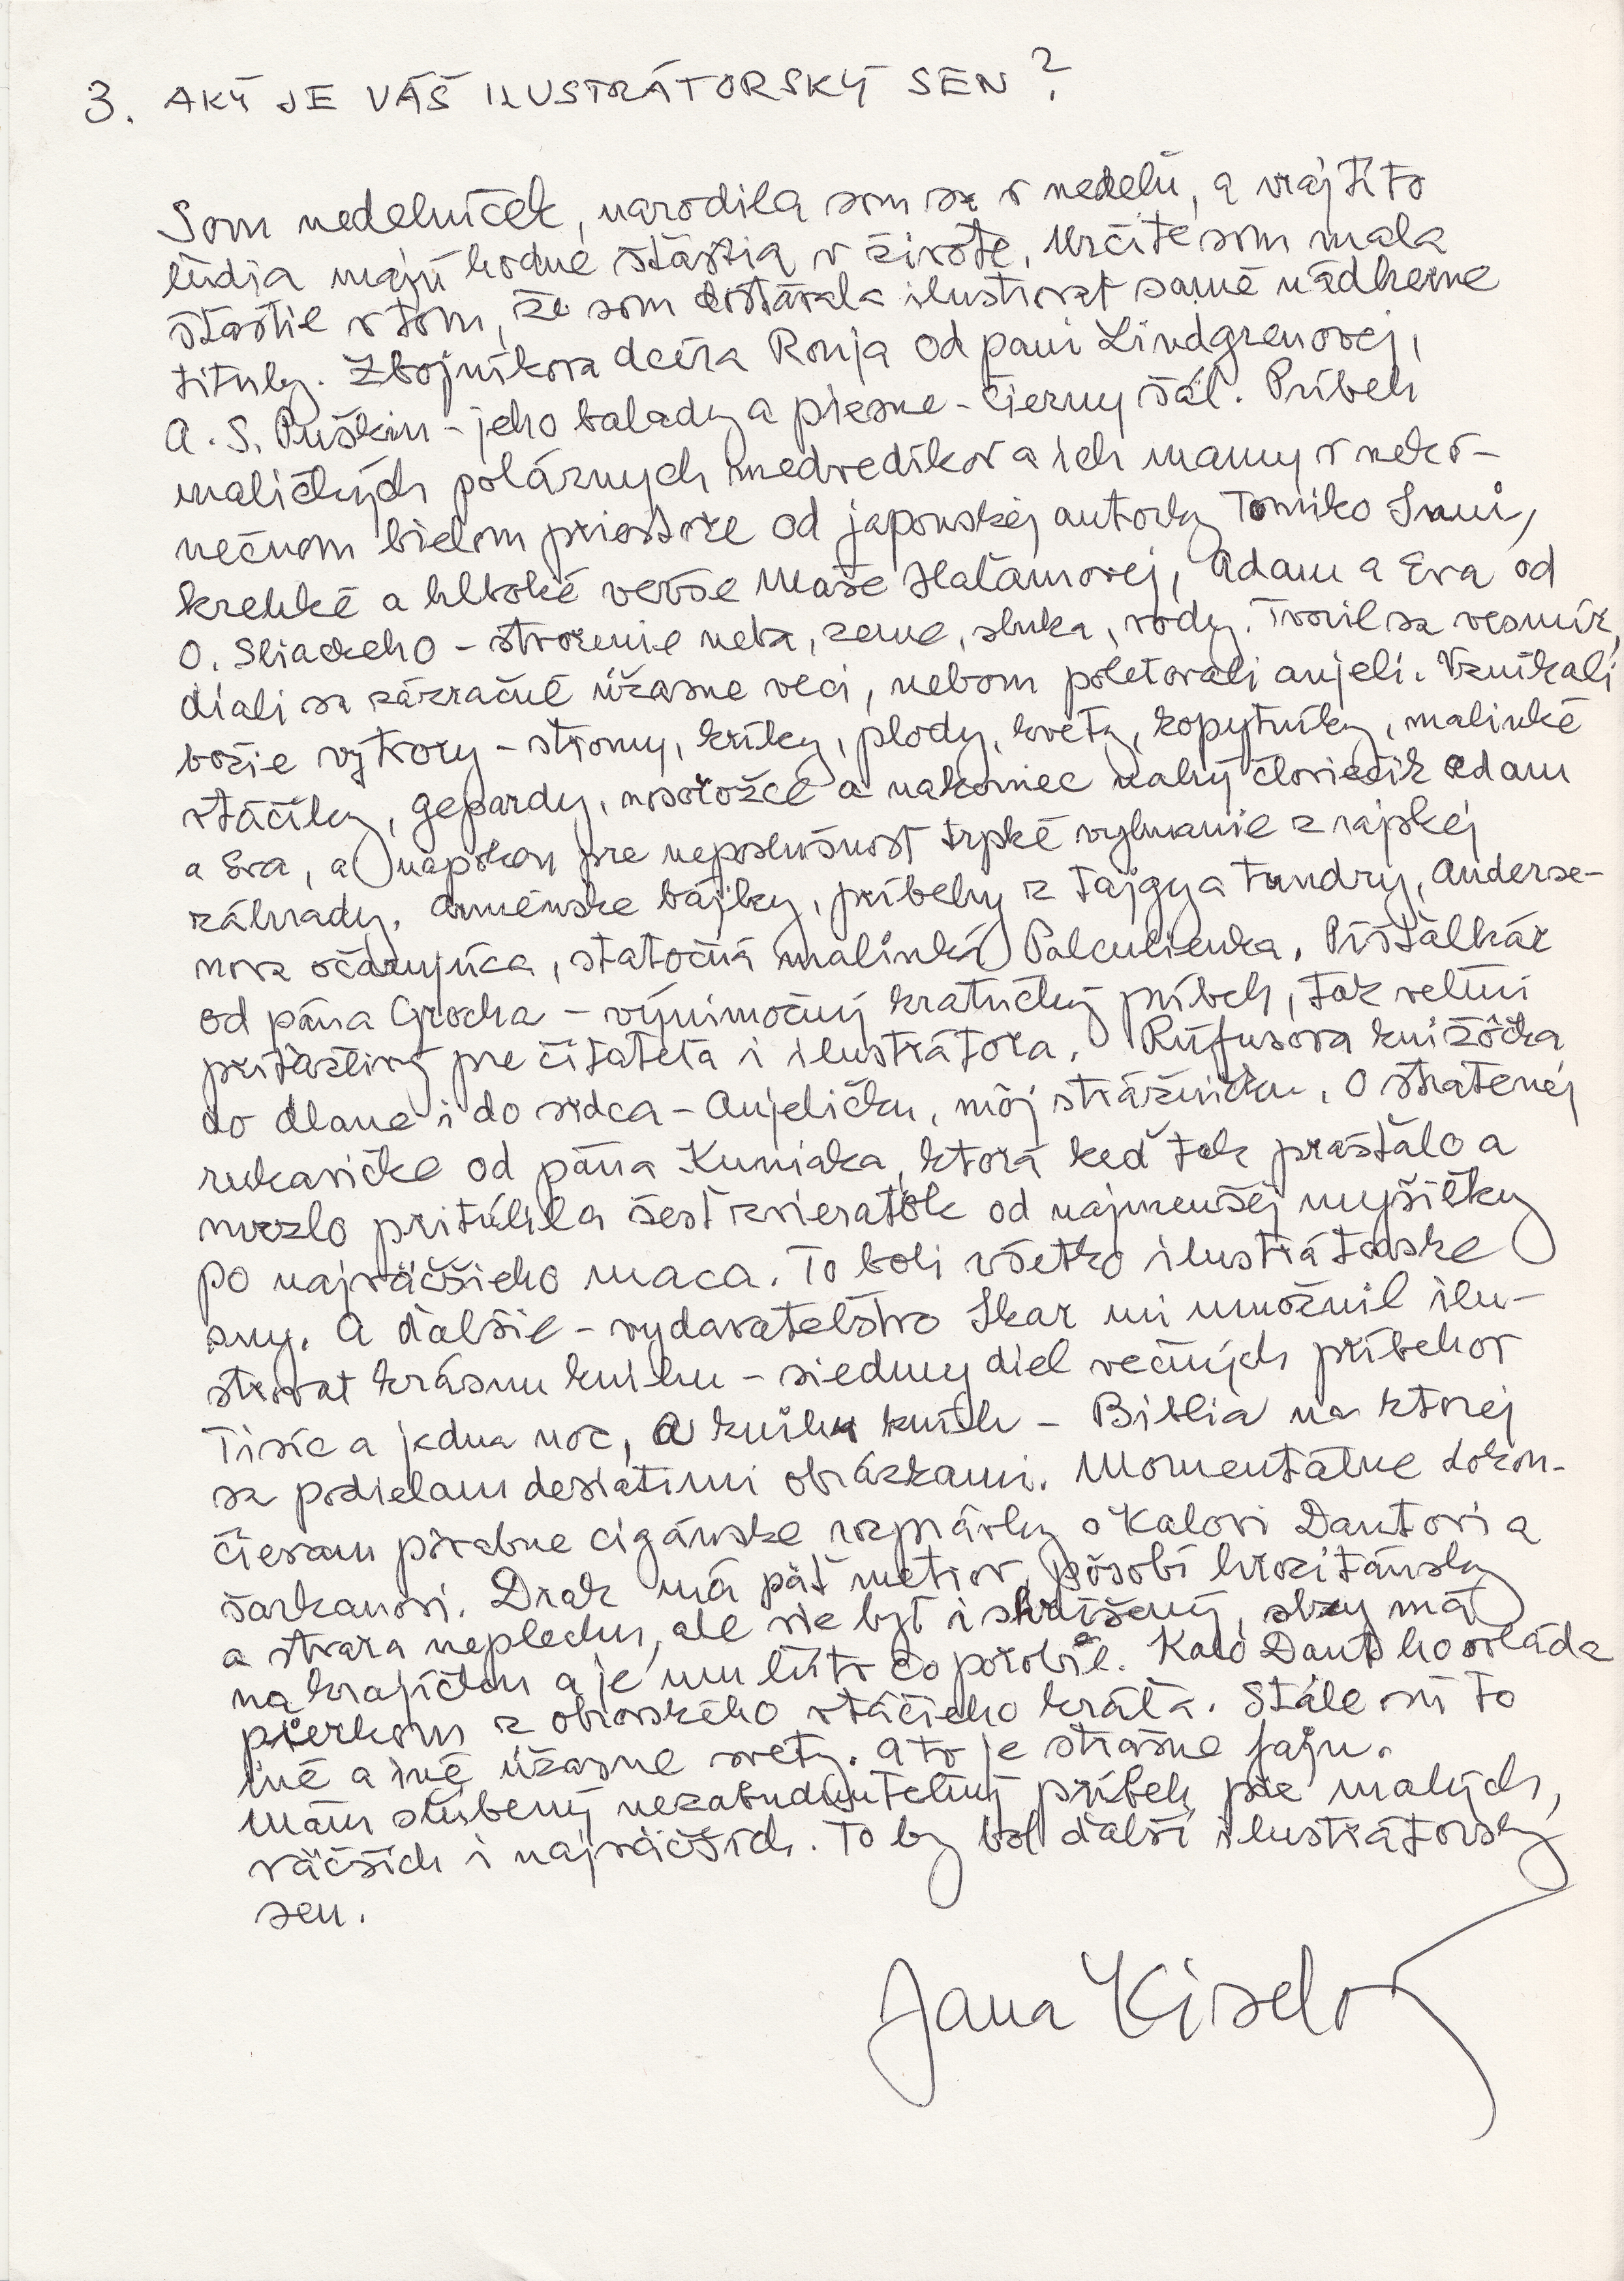 3. AKÝ JE VÁŠ ILUSTRÁTORSKÝ SEN?
Som nedelníček, narodila som sa v nedeľu, a vraj títo
ľudia majú hodne šťastia v živote. Určite som mala
šťastie v tom, že som dostávala ilustrovať samé nádherné
tituly. Zbojníkova dcéra Ronja od pani Lindgrenovej,
A. S. Puškin - jeho balady a piesne - Čierny šál. Príbeh
maličkých polárnych medvedíkov a ich mamy v neko-
nečnom bielom priestore od japonskej autorky Tomiko Inui,
krehké a hlboké verše Maše Haľamovej, Adam a Eva od
O. Sliackeho - stvorenie neba, zeme, slnka, vody. Tvoril sa vesmír,
diali sa zázračné úžasné veci, nebom poletovali anjeli. Vznikali
božie výtvory - stromy, kríky, plody, kvety, kopytníky, malinké
vtáčiky, gepardy, nosorožce a nakoniec nahý človiečik Adam
a Eva, a napokon pre neposlušnosť trpké vyhnanie z rajskej
záhrady. Arménske bájky, príbehy z tajgy a tundry, Anderse-
nova očarujúca, statočná malinká Palculienka. Píšťalkár
od pána Grocha - výnimočný kratučký príbeh, tak veľmi
príťažlivý pre čitateľa i ilustrátora. Rúfusova knižôčka
do dlane i do srdca - Anjeličku, môj strážničku. O stratenej
rukavičke od pána Kuniaka, ktorá keď tak praštalo a
mrzlo pritúlila šesť zvieratôk od najmenšej myšičky
po najväčšieho maca. To boli všetko ilustrátorské
sny. A ďalšie - vydavateľstvo Ikar mi umožnil ilu-
strovať krásnu knihu - siedmy diel večných príbehov
Tisíc a jedna noc, a knihu kníh - Biblia na ktorej
sa podielam desiatimi obrázkami. Momentálne dokon-
čievam pôvabne cigánske rozprávky o Kalovi Dantovi a
šarkanovi. Drak má päť metrov, pôsobí hrozitánsky
a stvára neplechu, ale vie byť i skrúšený, slzy má
na krajíčku a je mu ľúto čo porobil. Kalo Dant ho ovláda
pierkom z obrovského vtáčieho kráľa. Stále sú to
iné a iné úžasné svety. A to je strašne fajn.
Mám sľúbený nezabudnuteľný príbeh pre malých,
väčších i najväčších. To by bol ďalší ilustrátorský
sen.
Jana Kiselová